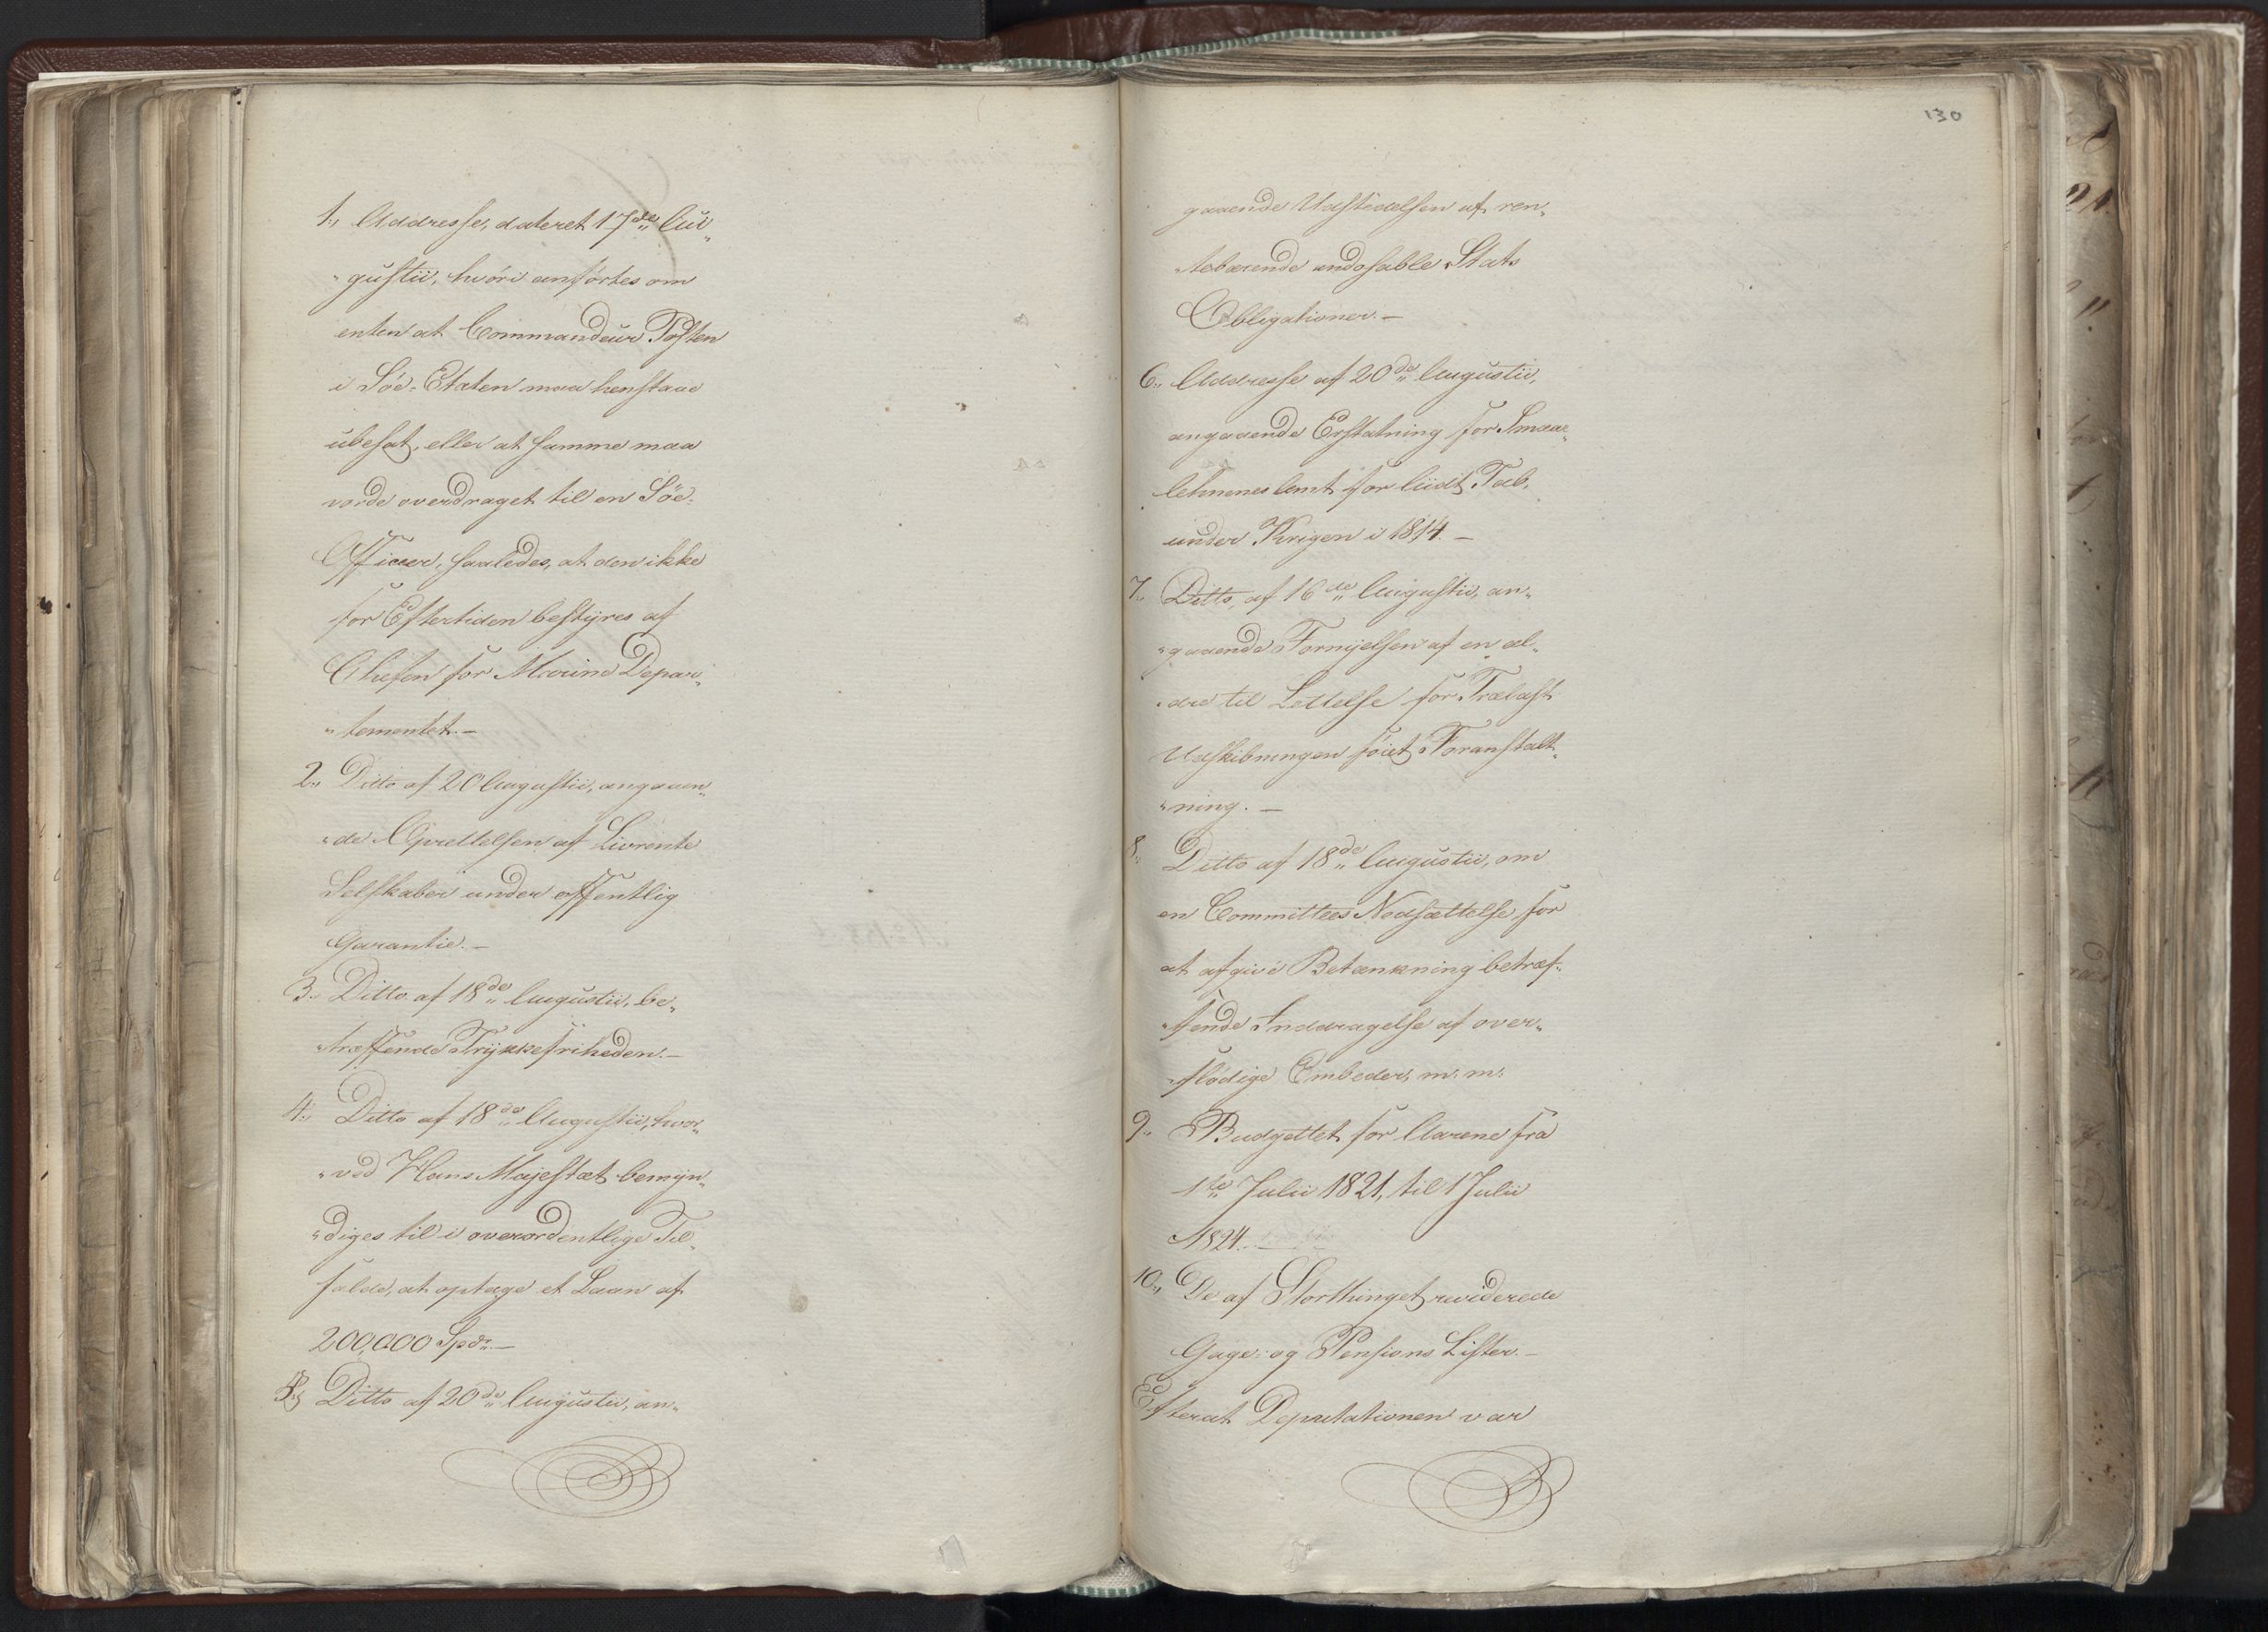 1., Addresse, dateret 17de Au„
„gustii, hvori anförtes om
enten at Commandeur Posten
i Söe-Etaten maa henstaae
ubesat, eller at samme maa
vorde overdraget til en Söe-
Officeer, saaledes, at den ikke
for Eftertiden bestyres af
Chefen for Marine Depar„
„tementet.–
2., Ditto af 20 Augustii, angaaen„
„de Oprettelsen af Livrente
Selskaber under offentlig
Garantie.–
3., Ditto af 18de Augustii, be„
„træffende Trykkefriheden.–
4., Ditto af 18de Augustii, hvor„
„ved Hans Majestæt bemyn„
„diges til i overordentlige Til„
fælde, at optage et Laan af
200,000 Spd.–
5., Ditto af 20de Augustii, an„
130
gaaende Udstædelsen af ren„
„tebærende Stats
Obligationer.–
6., Addresse af 20de Augustii,
angaaende Erstatning for Smaae„
lehnenes Amt for liidt Tab,
under Krigen i 1814.–
7., Ditto, af 16de Augustii, an„
„gaaende Fornyelsen af en æl„
„dre til Lettelse for Trælast
Udskibningen föiet Foranstalt„
„ning.–
8., Ditto af 18de Augustii, om
en Committees Nedsættelse for
at afgive Betænkning betræf„
„fende Inddragelse af over„
„flödige Embeder, m: m:
9., Budgettet for Aarene fra
1ste Julii 1821, til 1 Julii
1824.–
10., De af Storthinget reviderede
Gage- og Pensions Lister.–
Efterat Deputationen var